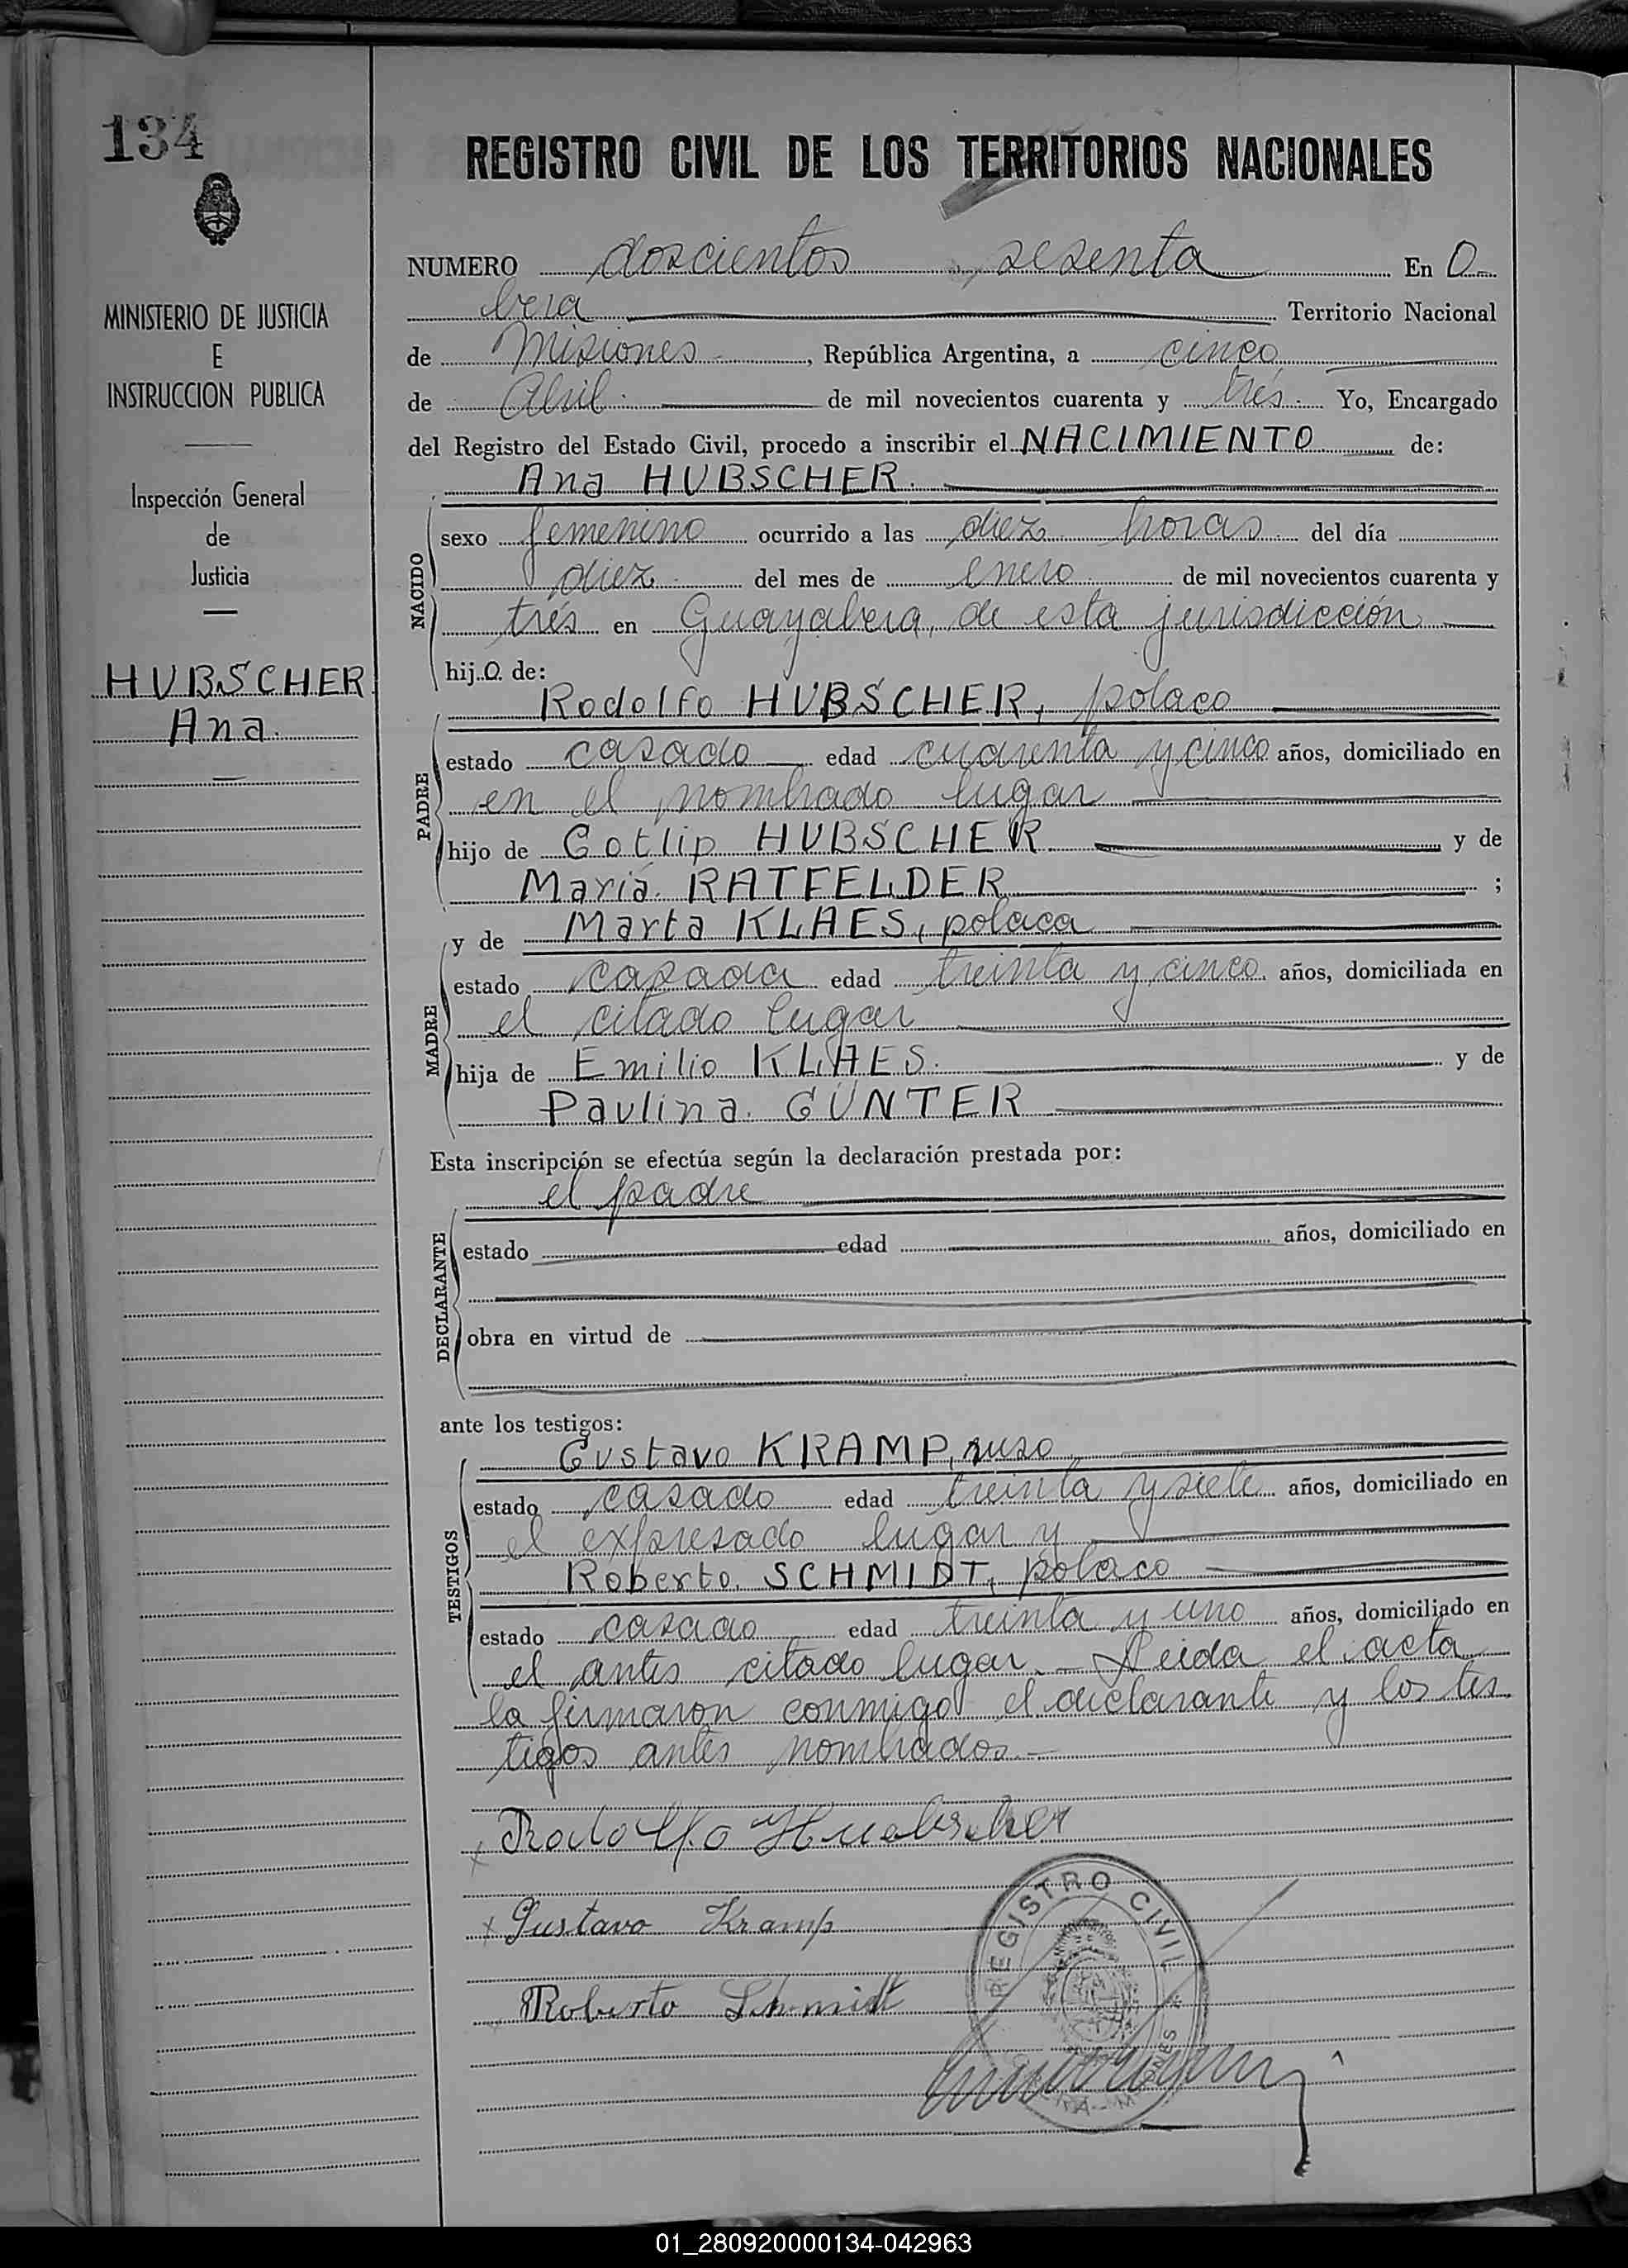 134
MINISTERIO DE JUSTICIA
E
INSTRUCCION PUBLICA
Inspección General
de
Justicia
HUBSCHER
Ana.
REGISTRO CIVIL DE LOS TERRITORIOS NACIONALES
NUMERO doscientos sesenta En O-
bera Territorio Nacional
de Misiones, República Argentina, a cinco
de Abril de mil novecientos cuarenta y trés. Yo, Encargado
del Registro del Estado Civil, procedo a inscribir el NACIMIENTO de:
Ana HUBSCHER.
NACIDO
sexo femenino ocurrido a las diez horas. del día
diez del mes de enero de mil novecientos cuarenta y
trés en Guayabera, de esta jurisdicción
hij a de:
Rodolfo HUBSCHER, polaco
PADRE
estado casado edad cuarenta y cinco años, domiciliado en
en el nombrado lugar
hijo de Gotlip HUBSCHER y de
María RATFELDER ;
y de Marta KLAES, polaca
MADRE
estado casada edad treinta y cinco años, domiciliada en
el citado lugar
hija de Emilio KLAES. y de
Paulina GÜNTER
Esta inscripción se efectúa según la declaración prestada por:
el padre
DECLARANTE
estado edad años, domiciliado en
obra en virtud de
ante los testigos:
Gustavo KRAMP, ruso
TESTIGOS
estado casado edad treinta y siete años, domiciliado en
el expresado lugar y
Roberto SCHMIDT, polaco
estado casado edad treinta y uno años, domiciliado en
el antes citado lugar.- Leida el acta
la firmaron conmigo el declarante y los tes
tigos antes nombrados.-
x Rodolfo Huebscher
x Gustavo Kramp
Roberto Schmidt
REGISTRO CIVIL
01_280920000134-042963